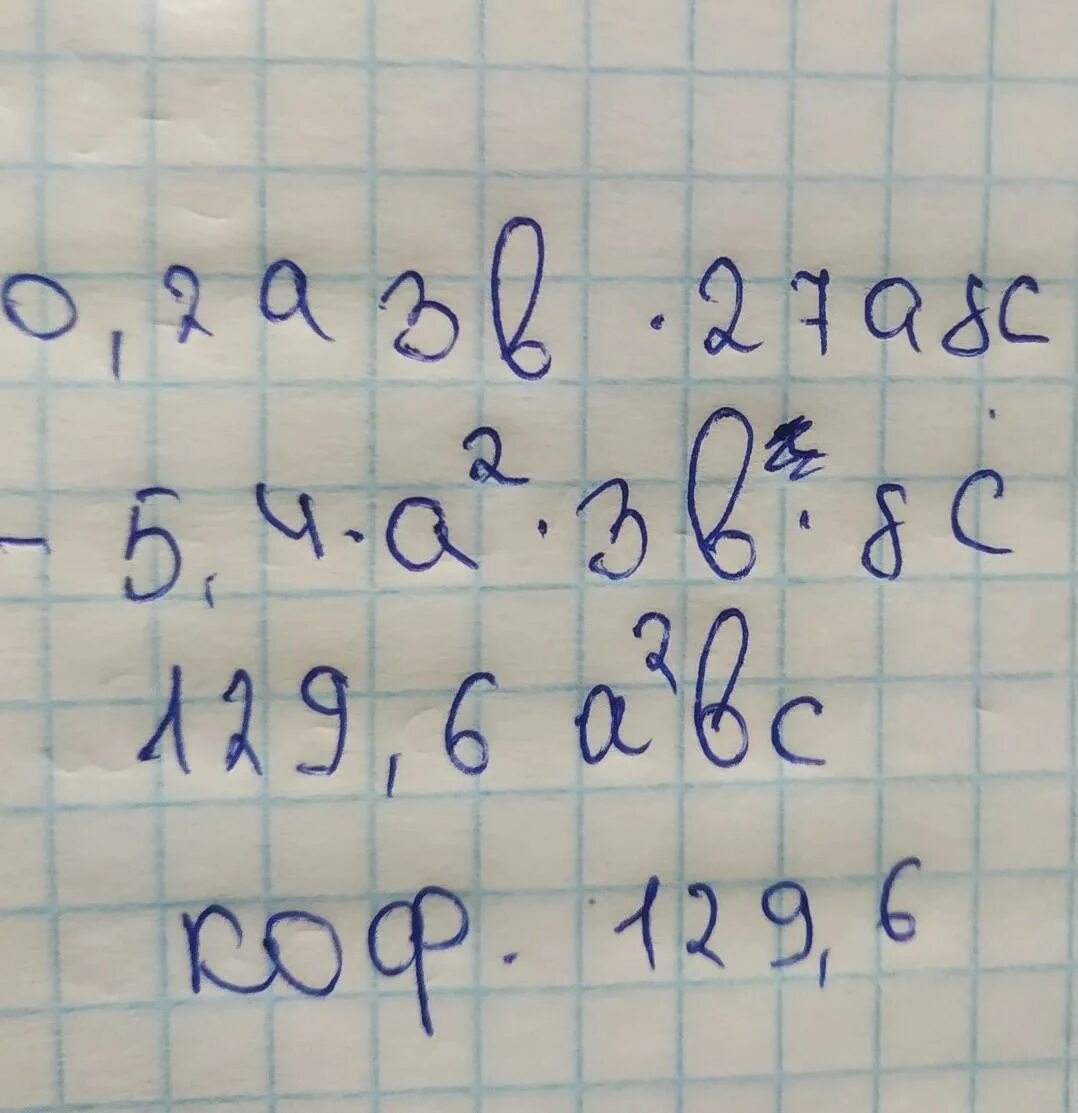 0,2a3b · 27a8c
- 5,4 · a² · 3b · 8c
129,6 a²bc
коф. 129,6